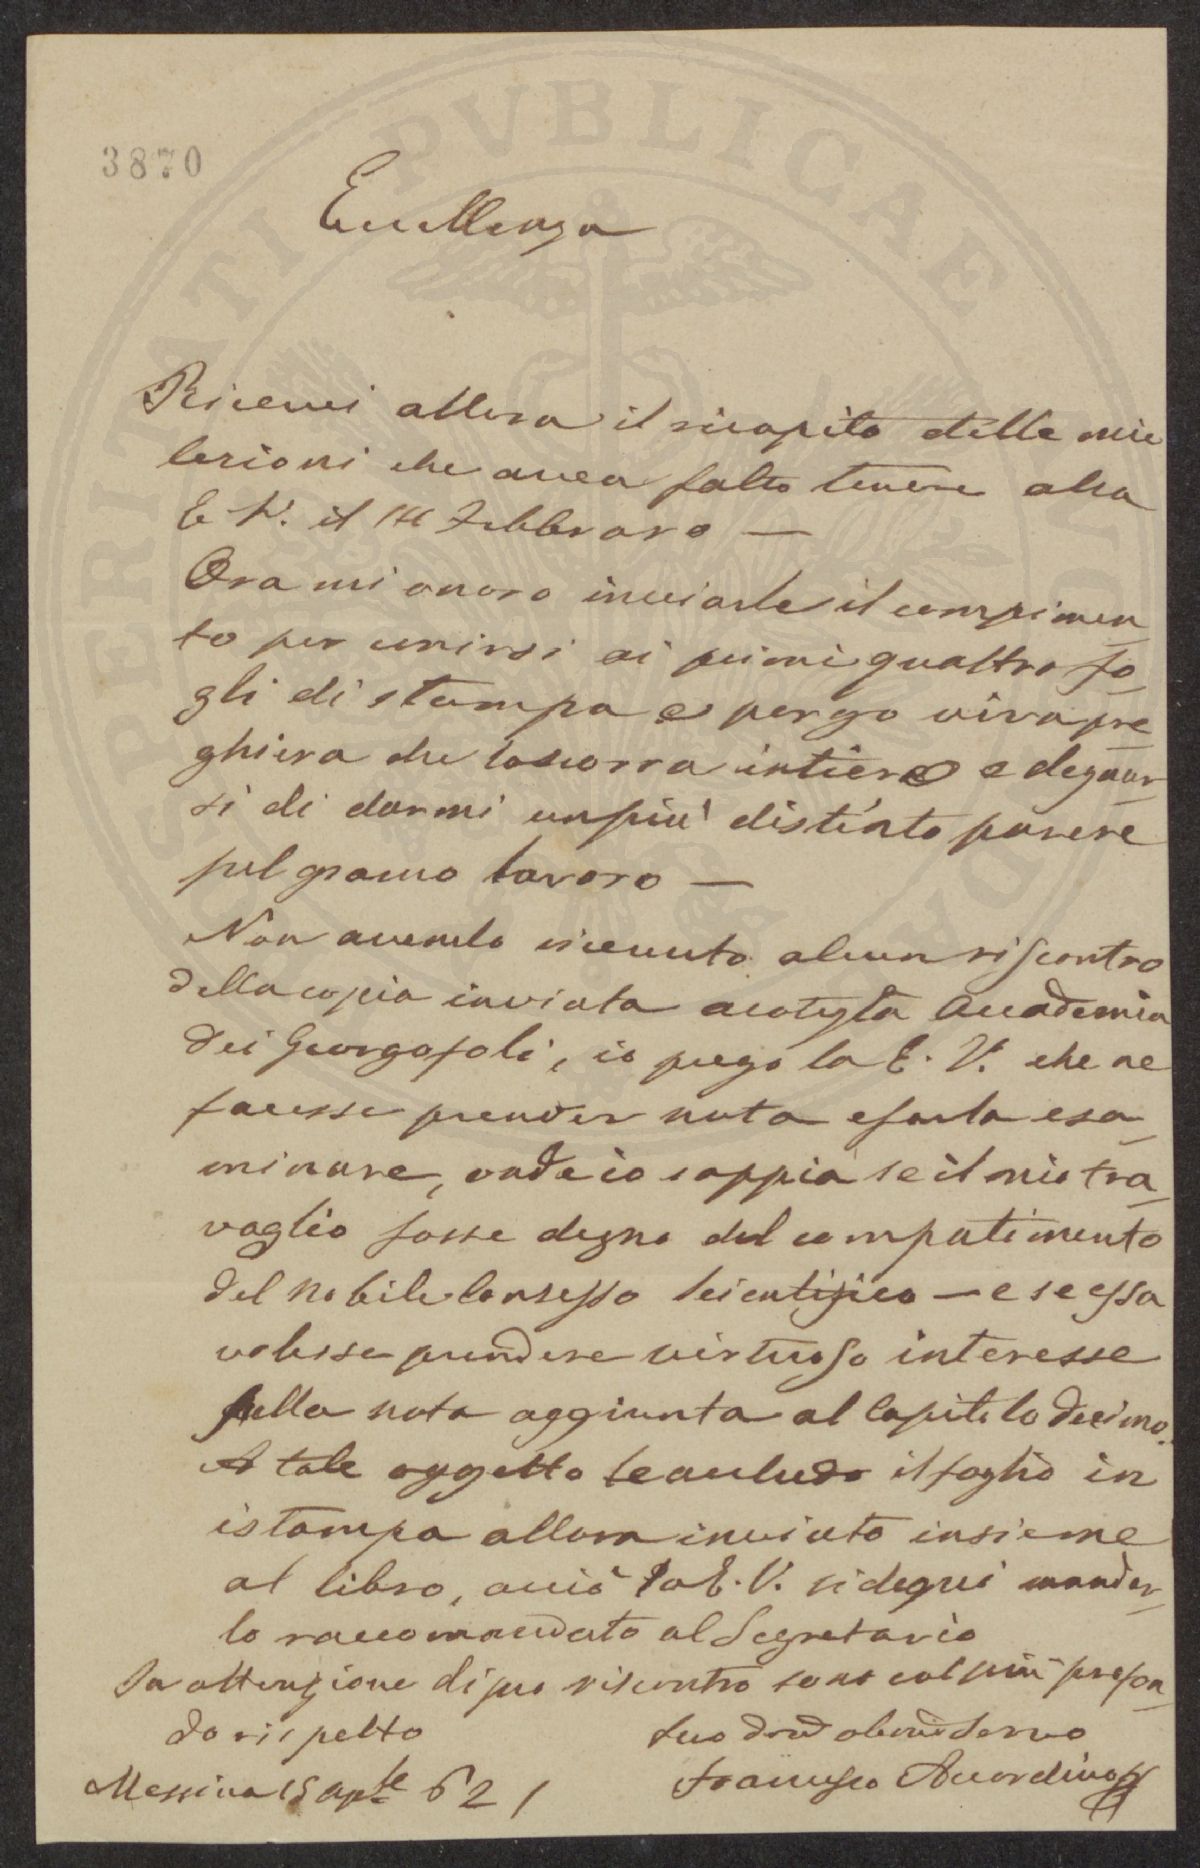 3870
Eccellenza
Ricevei allora il ricapito delle mie
lezioni che avea fatto tenere alla
E. V. il 14 Febbraro —
Ora mi onoro inviarle il compimen
to per unirsi ai primi quattro fo
gli di stampa e porgo viva pre
ghiera che la scorra intiera e degnar
si di darmi un più distinto parere
pel gramo lavoro —
Non avendo ricevuto alcun riscontro
della copia inviata a cotesta Accademia
dei Georgofoli, io prego la E. V. che ne
facesse prender nota e farla esa
minare, onde io sappia se il mio tra
vaglio fosse degno del compatimento
del nobile Consesso Scientifico — e se essa
volesse prendere virtuoso interesse
sulla nota aggiunta al Capitolo decimo.
A tale oggetto le accludo il foglio in
istampa allora inviato insieme
al libro, acciò la E. V. si degni mandar
lo raccomandato al Segretario
In attenzione di suo riscontro sono col più profon
do rispetto
Suo servo
Messina 15 62
Francesco Accordino
PERITATI PVBLICAE